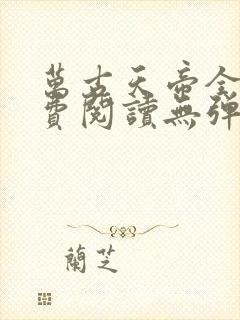 萬古天帝全
費閱讀無彈
蘭芝